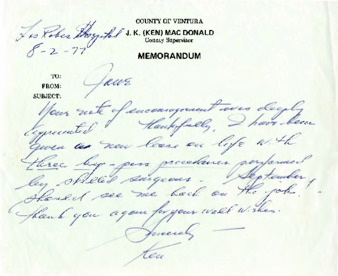 COUNTY OF VENTURA
Los Robles Hospital
J. K. (KEN) MAC DONALD
8-2-77
County Supervisor
MEMORANDUM
TO:
FROM:
SUBJECT:
Your note of encouragement was deeply
appreciated Thankfully, I have been
given a new lease on life with
three by-pass procedures performed
by skilled surgeons. September
should see me back on the job!
Thank you again for your well wishes.
Sincerely
Ken